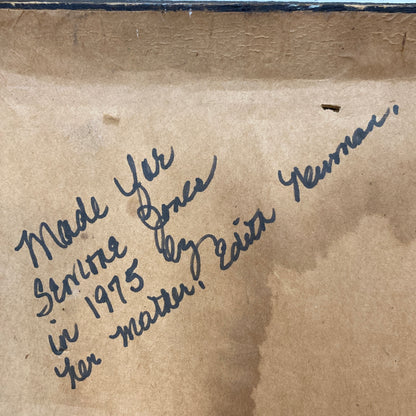 Made for
Simone Jones
in 1975 by
her mother, Edith Newman.